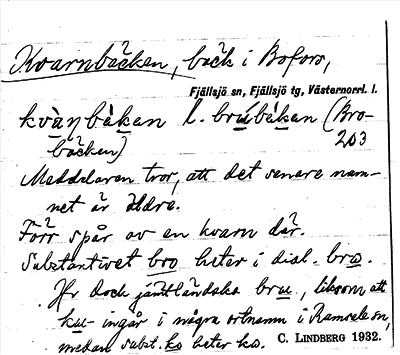 Kvarnbäcken, bäck i Bofors,
Fjällsjö sn, Fjällsjö tg, Västernorrl. l.
kvàṇbäken l. brúbäken (Bro-
bäcken) 203
Meddelaren tror, att det senare nam-
net är äldre.
Förr spår av en kvarn där.
Substantivet bro heter i dial. brω.
Jfr dock jämtländska bru, liksom att
ku- ingår i några ortnamn i Ramsele sn,
medan subst. ko heter kω. C. LINDBERG 1932.